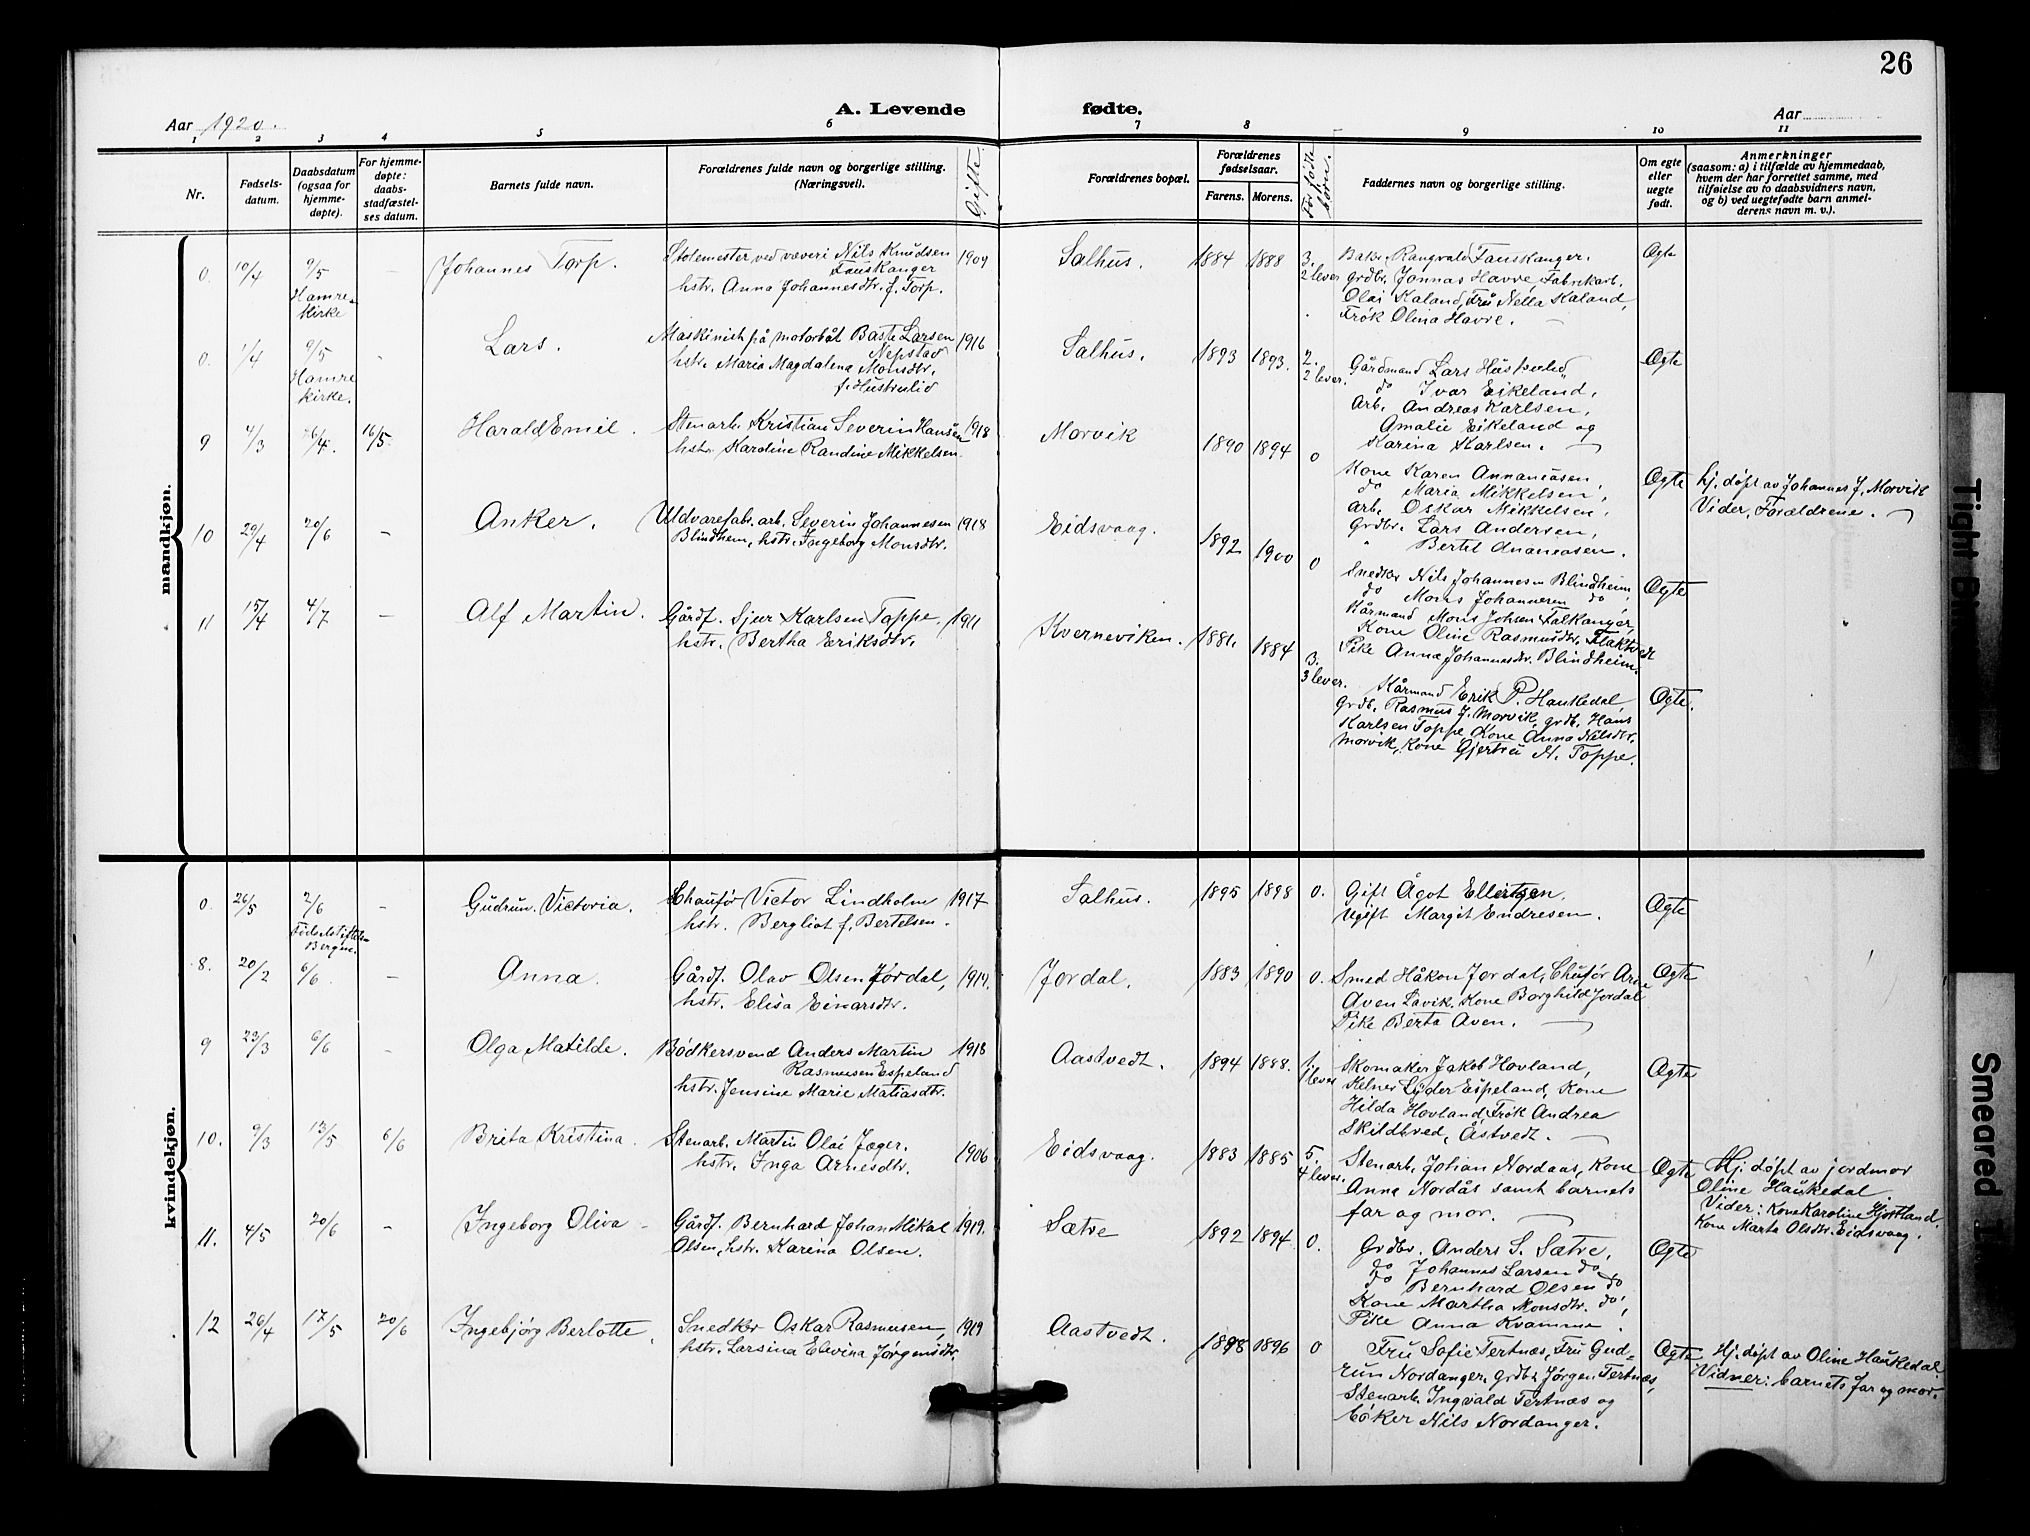 26
A. Levende fødte.
Aar 1920.
Aar
1 2 3 4 5 6 7 8 9 10 11
Nr.
Fødsels-
datum.
Daabsdatum
(ogsaa for
hjemme-
døpte).
For hjemme-
døpte:
daabs-
stadfæstel-
ses datum.
Barnets fulde navn.
Forældrenes fulde navn og borgerlige stilling.
(Næringsvei).
Gifte
Forældrenes bopæl.
Forældrenes
fødselsaar.
Farens. Morens.
Før fødte
børn.
Faddernes navn og borgerlige stilling.
Om egte
eller
uegte
født.
Anmerkninger
(saasom: a) i tilfælde av hjemmedaab,
hvem der har forrettet samme, med
tilføielse av to daabsvidners navn,
og b) ved uegtefødte barn anmel-
derens navn m. v.).
mandkjøn.
0. 10/4 9/5 –
Hamre
kirke
Johannes Torp.
Stolemester ved væveri Nils Knudsen
Fauskanger
hstr. Anna Johannesdtr. f. Torp.
1909
Salhus.
1884 1888 3.
2 lever
Baker Rangvald Fauskanger.
grdbr. Jonnas Havre, Fabrikarb.
Olai Kaland, Fru Nella Kaland,
Frøk Olina Havre. –
Ogte
0. 1/4 9/5 –
Hamre
kirke.
Lars.
Maskinist på motorbåt Baste Larsen
Nepstad
hstr. Maria Magdalena Monsdtr.
f. Hustrulid
1916
Salhus.
1893 1893. 2.
2 lever.
Gårdmand Lars
do Ivar Eikeland,
Arb. Andreas Karlsen,
Amalie Eikeland og
Karina Karlsen. –
Ogte
9 4/3 26/4. 16/5.
Harald Emil.
Stenarb. Kristian Severin Hansen
hstr. Karoline Randine Mikkelsen.
1918
Morvik
1890 1894 0
Kone Karen Annaniasen,
do Maria Mikkelsen,
Arb. Oskar Mikkelsen,
Grdbr. Lars Andersen,
" Bertel Ananiasen.
Ogte
hj. døpt av Johannes J. Morvik
Vider, Forældrene. –
10 29/4 20/6 –
Anker.
Uldvarefabr. arb. Severin Johannesen
Blindhem, hstr. Ingeborg Monsdtr.
1918
Eidsvaag.
1892 1900 0
Snedker Nils Johannesen Blindheim,
do Mons Johannesen do,
Kårmand Mons Johsen Falkanger,
Kone Oline Rasmusdtr. Flaktvedt
Pike Anna Johannesdtr. Blindheim.
Ogte
11 15/4 4/7 –
Alf Martin.
Gårdf. Sjur Karlsen Toppe,
hstr. Bertha Eriksdtr.
1911
Kverneviken.
1881. 1884 3.
3 lever.
Kårmand Erik P. Haukedal,
Grdb. Rasmus J. Morvik, grdb. Hans
Karlsen Toppe, Kone Anna Nilsdtr.
Morvik, Kone Gjertru N. Toppe.
Ogte.
kvindekjøn.
0. 26/5 2/6 –
Fødselstiftelsen
Bergen.
Gudrun Victoria.
Chauför Victor Lindholm
hstr. Bergliot f. Bertelsen.
1917
Salhus.
1895 1898 0.
Gift Ågot Ellertsen.
Ugift Margit Endresen.
Ogte
8. 20/2 6/6 –
Anna.
Gårdf. Olav Olsen Jordal,
hstr. Elisa Einarsdtr.
1914.
Jordal.
1883 1890 0.
Smed Håkon Jordal, Chufør Arne
Aven Lavik, Kone Borghild Jordal
Pike Berta Aven. –
Ogte
9 23/3 6/6 –
Olga Matilde.
Bødkersvend Anders Martin
Rasmusen Espeland
hstr. Jensine Marie Matiasdtr.
1918
Aastvedt.
1894 1888. 1.
1 lever
Skomaker Jakob Hovland,
Kelner Lyder Espeland, Kone
Hilda Hovland, Frøk Andrea
Skildbred, Åstvedt. –
Ogte
10. 9/3 13/5 6/6
Brita Kristina.
Stenarb. Martin Olai Jæger.
hstr. Inga Arnesdtr.
1906
Eidsvaag.
1883 1885 5.
4 lever.
Stenarb. Johan Nordaas, Kone
Anna Nordås samt barnets
far og mor. –
Ogte
Hj. døpt av jordmor
Oline Haukedal
Vider: Kone Karoline Hjortland.
Kone Marta Olsdtr. Eidsvaag.
11. 4/5 20/6 –
Ingeborg Oliva
Gårdf. Bernhard Johan Mikal
Olsen, hstr. Karina Olsen.
1919.
Sætre
1892 1894 0.
Grdbr. Anders S. Sætre,
do Johannes Larsen do
do Bernhard Olsen do
Kone Martha Monsdtr. do,
Pike Anna Kvamme.
Ogte
12 26/4 17/5 20/6
Ingebjørg Berlotte.
Snedker Oskar Rasmusen,
hstr. Larsina Elevina Jørgensdtr.
1919
Aastvedt.
1898 1896 0
Fru Sofie Tertnæs, Fru Gud=
run Nordanger, grdbr Jørgen Tertnæs,
Stenarb. Ingvald Tertnæs og
bøker Nils Nordanger.
Ogte
Hj. døpt av Oline Haukedal
Vidner: barnets far og mor.
Smeared